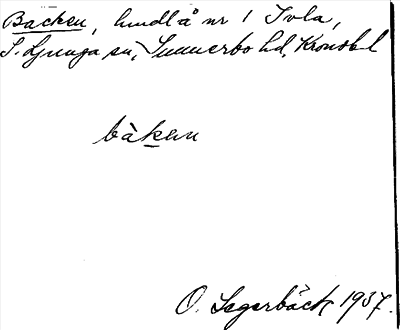 Backen, hmdl å nr 1 Tvla,
S. Ljunga sn, Sunnerbo hd, Kronob l
bàken
O. Segerbäck 1937.